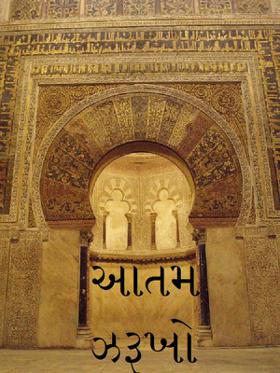 આતમ
ઝરૂખો